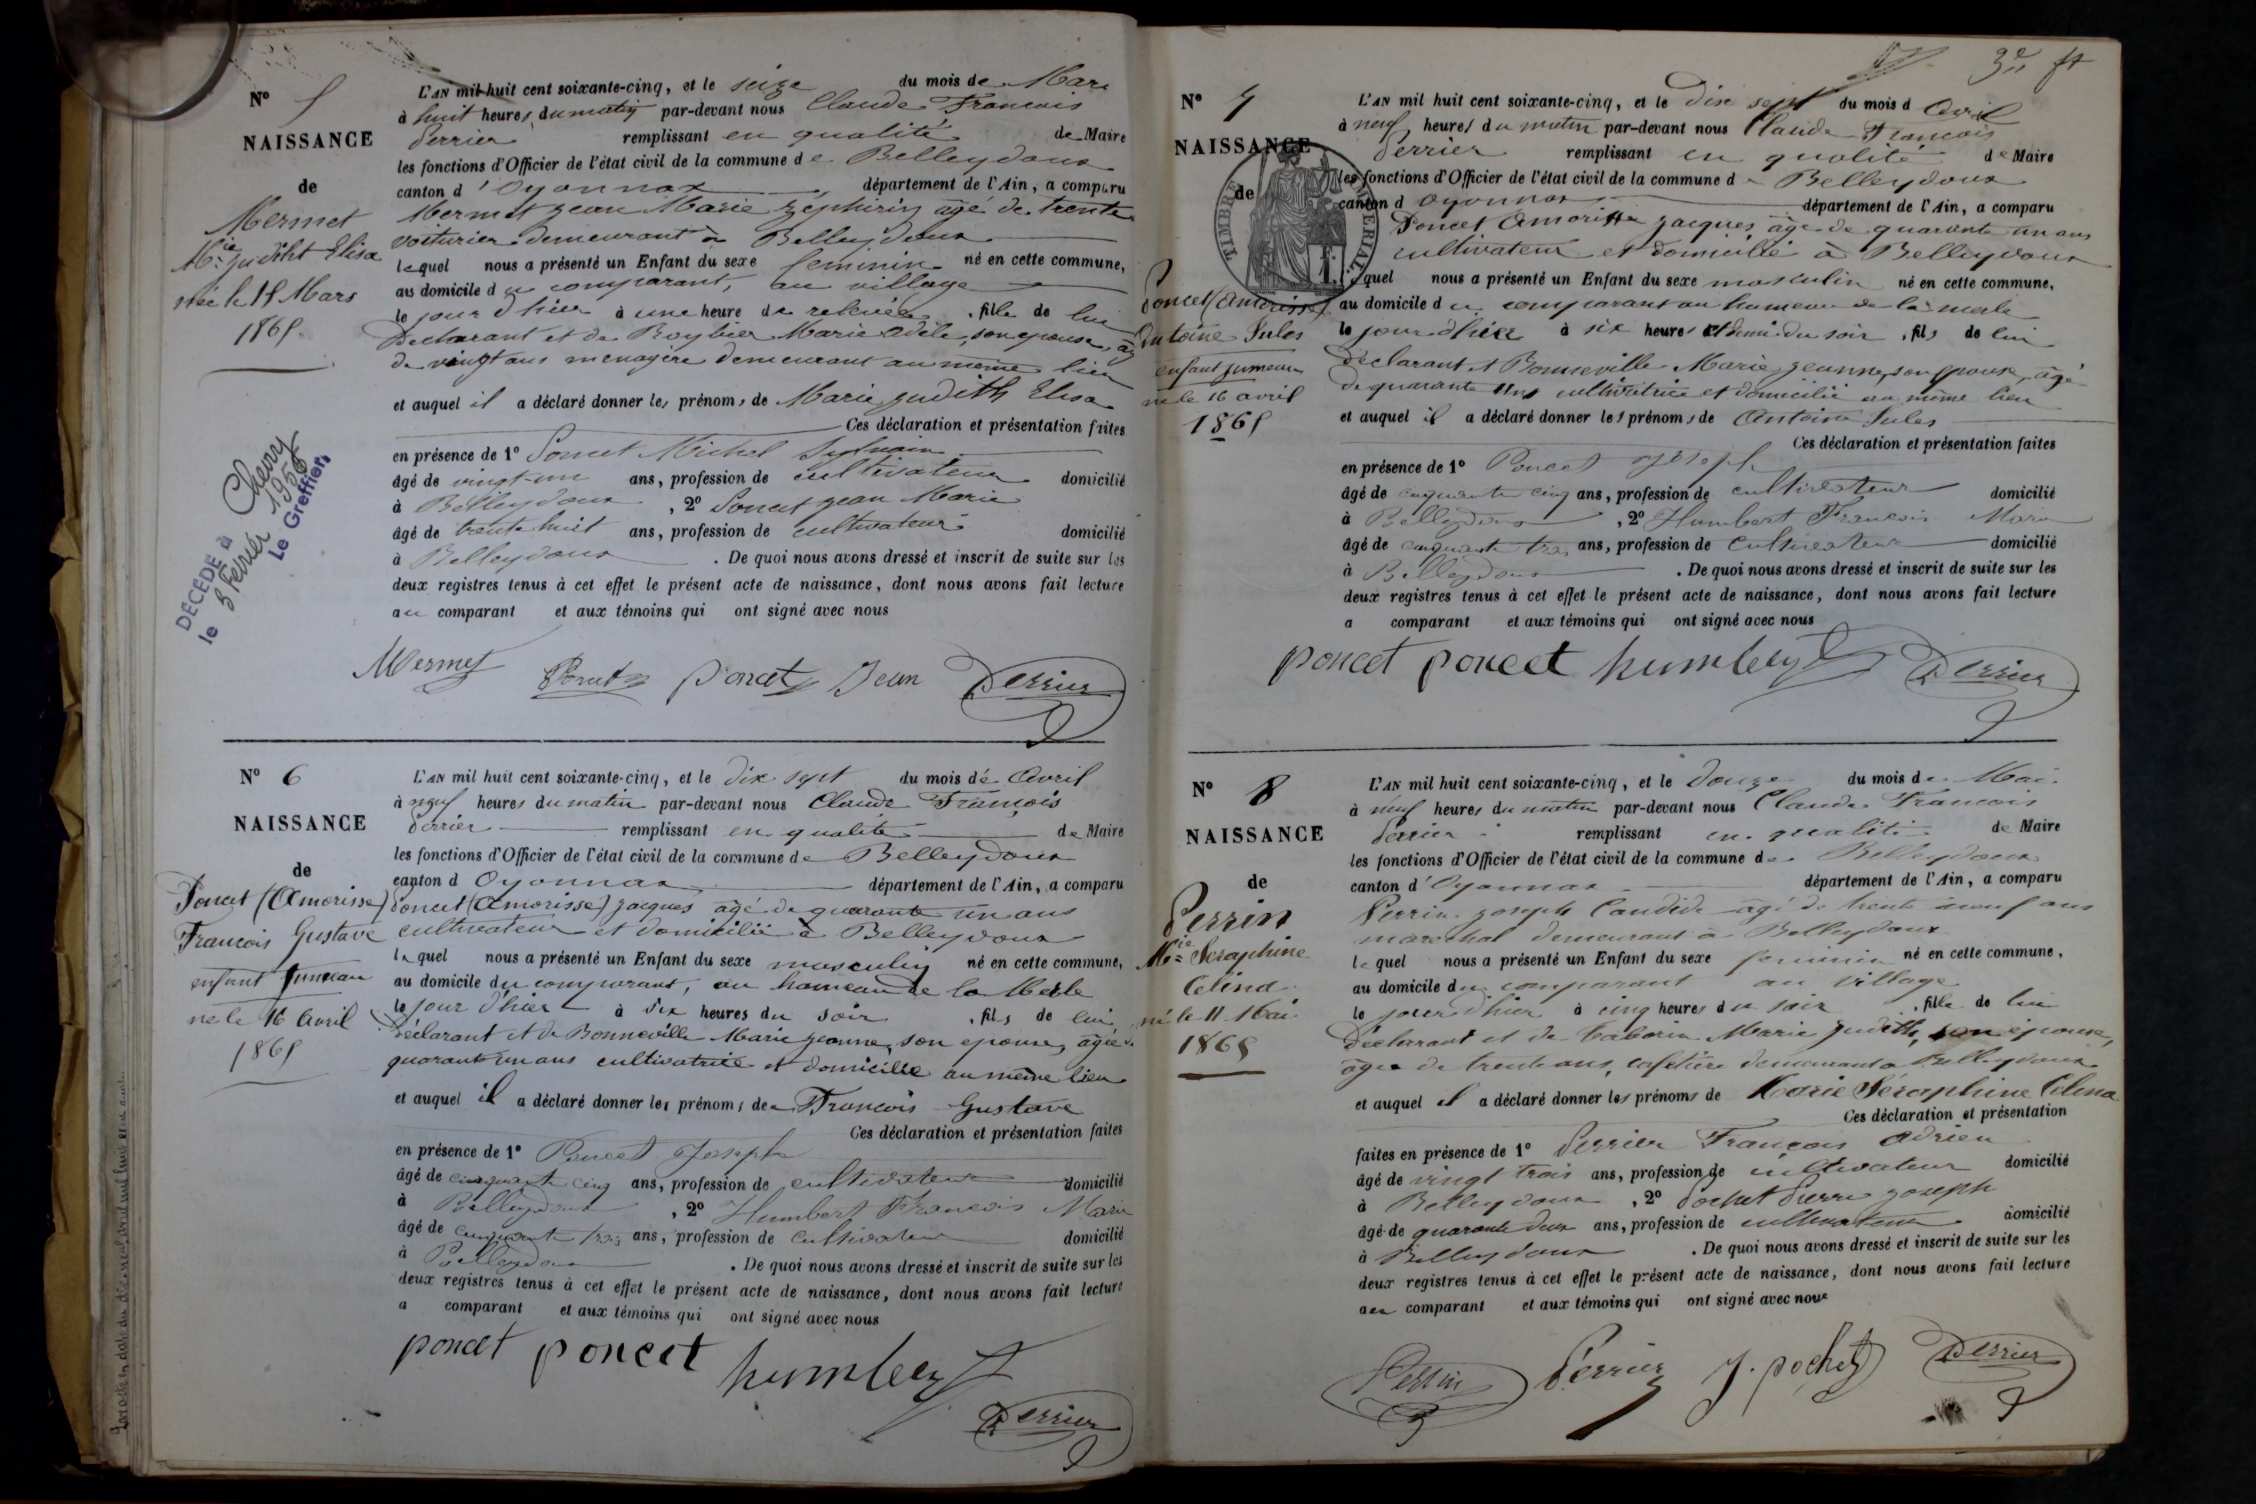 N° 5
NAISSANCE
de
Mermet
Mie Judith Elisa
née le 15 Mars
1865.
DÉCÉDÉ à Chevry
le 5 Février 1956
Le Greffier,
L'AN mil huit cent soixante-cinq, et le seize du mois de Mars
à huit heures du matin par-devant nous Claude François
Perrier remplissant en qualité de Maire
les fonctions d'Officier de l'état civil de la commune de Belleydoux
canton d'Oyonnax département de l'Ain, a comparu
Mermet Jean Marie Zéphirin âgé de trente
voiturier demeurant à Belleydoux
lequel nous a présenté un Enfant du sexe feminin né en cette commune,
au domicile du comparant, au village
le jour d'hier à une heure de relevée, fille de lui
Déclarant et de Roybier Marie Adèle, son épouse,
de vingt ans ménagère demeurant au même lieu
et auquel il a déclaré donner les prénoms de Marie Judith Elisa
Ces déclaration et présentation faites
en présence de 1° Poncet Michel Sylvain
âgé de vingt-un ans, profession de cultivateur domicilié
à Belleydoux, 2° Poncet Jean Marie
âgé de trente huit ans, profession de cultivateur domicilié
à Belleydoux. De quoi nous avons dressé et inscrit de suite sur les
deux registres tenus à cet effet le présent acte de naissance, dont nous avons fait lecture
au comparant et aux témoins qui ont signé avec nous
Mermet Poncet Poncet Jean Perrier
N° 6
NAISSANCE
de
Poncet (Amorisse)
François Gustave
enfant jumeau
né le 16 Avril
1865
L'AN mil huit cent soixante-cinq, et le dix sept du mois de Avril
à neuf heures du matin par-devant nous Claude François
Perrier remplissant en qualité de Maire
les fonctions d'Officier de l'état civil de la commune de Belleydoux
canton d Oyonnax département de l'Ain, a comparu
Poncet (Amorisse) Jacques âgé de quarante un ans
cultivateur et domicilié à Belleydoux
lequel nous a présenté un Enfant du sexe masculin né en cette commune,
au domicile du comparant, au hameau de la Merle
le jour d'hier à six heures du soir, fils de lui
déclarant et de Bonneville Marie Jeanne, son épouse, âgée de
quarante un ans cultivatrice et domicilié au même lieu
et auquel il a déclaré donner les prénoms de François Gustave
Ces déclaration et présentation faites
en présence de 1° Poncet Joseph
âgé de cinquante cinq ans, profession de cultivateur domicilié
à Belleydoux, 2° Humbert François Marie
âgé de cinquante trois ans, profession de cultivateur domicilié
à Belleydoux. De quoi nous avons dressé et inscrit de suite sur les
deux registres tenus à cet effet le présent acte de naissance, dont nous avons fait lecture
a comparant et aux témoins qui ont signé avec nous
poncet poncet humbert
Perrier
3e ft
N° 7
NAISSANCE
de
TIMBRE IMPÉRIAL
Poncet (Amorisse)
Antoine Jules
enfant jumeau
né le 16 avril
1865
L'AN mil huit cent soixante-cinq, et le dix sept du mois d Avril
à neuf heures du matin par-devant nous Claude François
Perrier remplissant en qualité de Maire
les fonctions d'Officier de l'état civil de la commune d Belleydoux
canton d Oyonnax département de l'Ain, a comparu
Poncet Amorisse Jacques âgé de quarante un ans
cultivateur et domicilié à Belleydoux
lequel nous a présenté un Enfant du sexe masculin né en cette commune,
au domicile du comparant au hameau de la merle
le jour d'hier à six heures et demi du soir, fils de lui
déclarant et Bonneville Marie Jeanne, son épouse, âgé
de quarante un cultivatrice et domicilié au même lieu
et auquel il a déclaré donner les prénoms de Antoine Jules
Ces déclaration et présentation faites
en présence de 1° Poncet Joseph
âgé de cinquante cinq ans, profession de cultivateur domicilié
à Belleydoux, 2° Humbert François Marie
âgé de cinquante trois ans, profession de cultivateur domicilié
à Belleydoux. De quoi nous avons dressé et inscrit de suite sur les
deux registres tenus à cet effet le présent acte de naissance, dont nous avons fait lecture
a comparant et aux témoins qui ont signé avec nous
poncet poncet humbert Perrier
N° 8
NAISSANCE
de
Perrin
Mie Seraphine
Celina
né le 11 Mai
1865
L'AN mil huit cent soixante-cinq, et le douze du mois de Mai
à neuf heures du matin par-devant nous Claude François
Perrier remplissant en qualité de Maire
les fonctions d'Officier de l'état civil de la commune de Belleydoux
canton d'Oyonnax département de l'Ain, a comparu
Perrin Joseph Candide âgé de trente neuf ans
maréchal demeurant à Belleydoux
lequel nous a présenté un Enfant du sexe feminin né en cette commune,
au domicile du comparant au village
le jour d'hier à cinq heures du soir, fille de lui
Déclarant et de Taborin Marie Judith, son épouse,
âgée de trente ans, cafetière demeurant à Belleydoux
et auquel il a déclaré donner les prénoms de Marie Séraphine Célina
Ces déclaration et présentation
faites en présence de 1° Perrier François Adrien
âgé de vingt trois ans, profession de cultivateur domicilié
à Belleydoux, 2° Pochet Pierre Joseph
âgé de quarante deux ans, profession de cultivateur domicilié
à Belleydoux. De quoi nous avons dressé et inscrit de suite sur les
deux registres tenus à cet effet le présent acte de naissance, dont nous avons fait lecture
au comparant et aux témoins qui ont signé avec nous
Perrin Perrier J. pochet Perrier